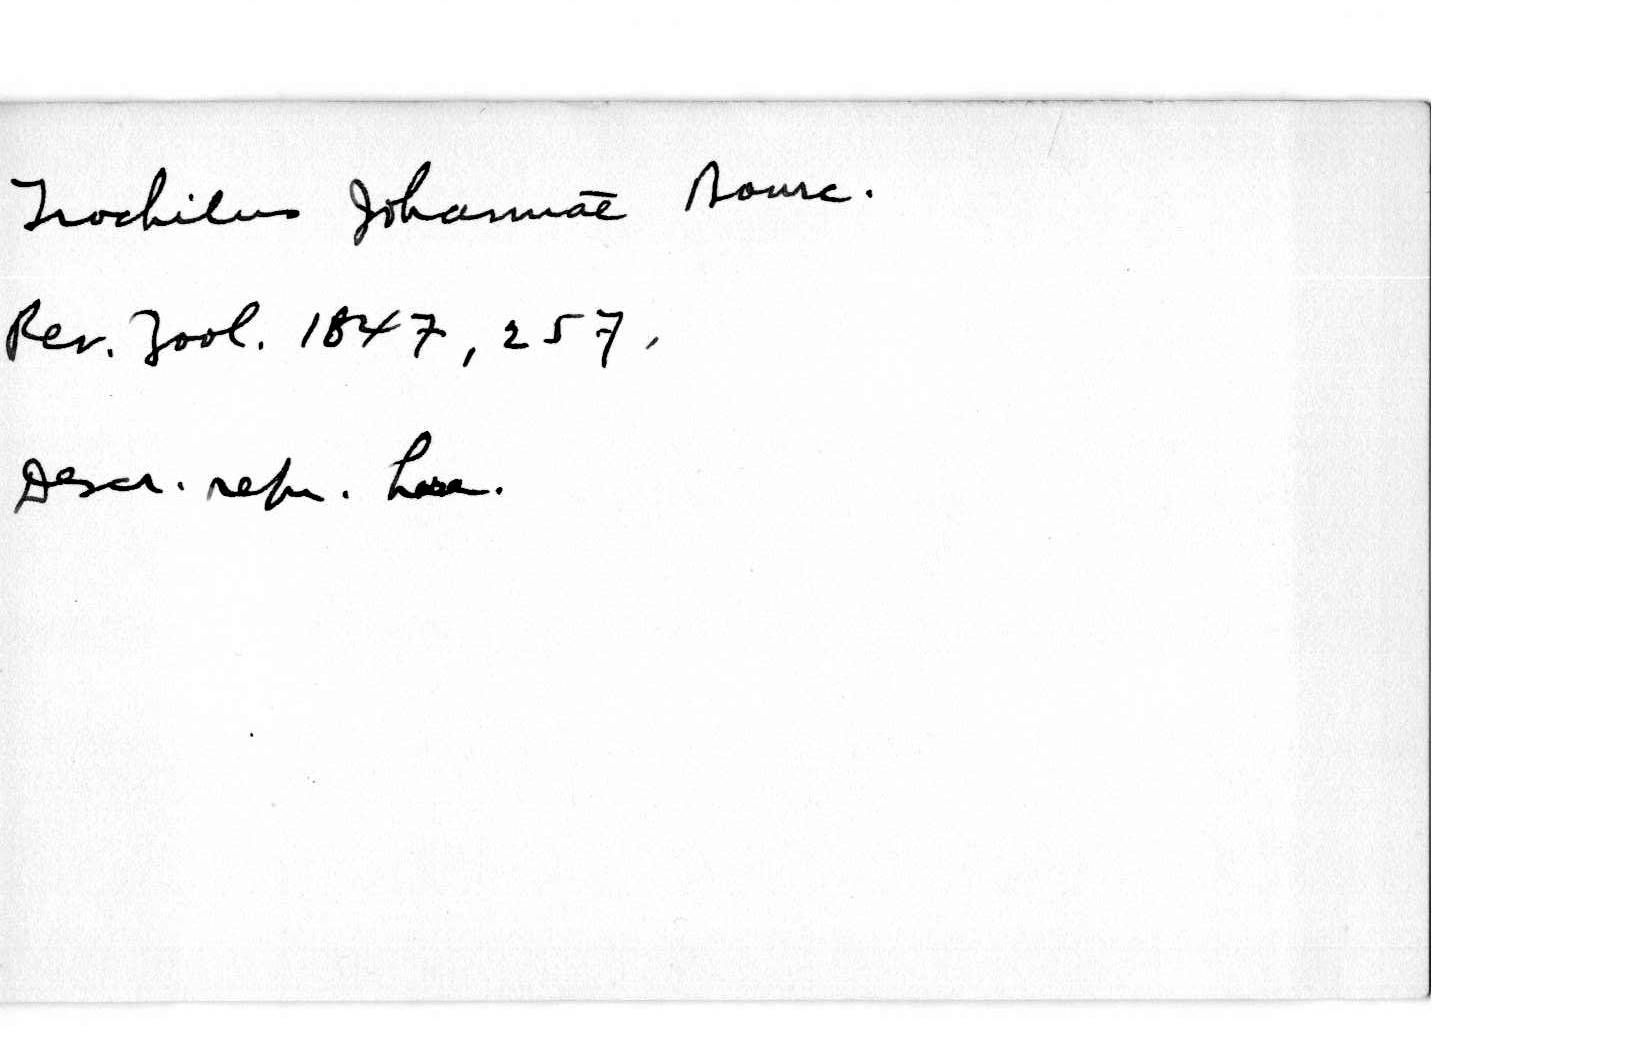 Trochilus Johannae Bourc.
Rev. Zool. 1847, 257.
Descr. repr.